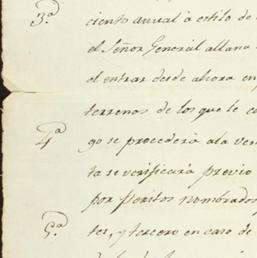 3.ª ciento anual à estilo de
el Señor General allana
el entrar desde ahora en
terrenos de los que le
4.ª go se procederá à la ven
ta se verificará previo
por Peritos nombrados
5.ª tes, y tercero en caso de